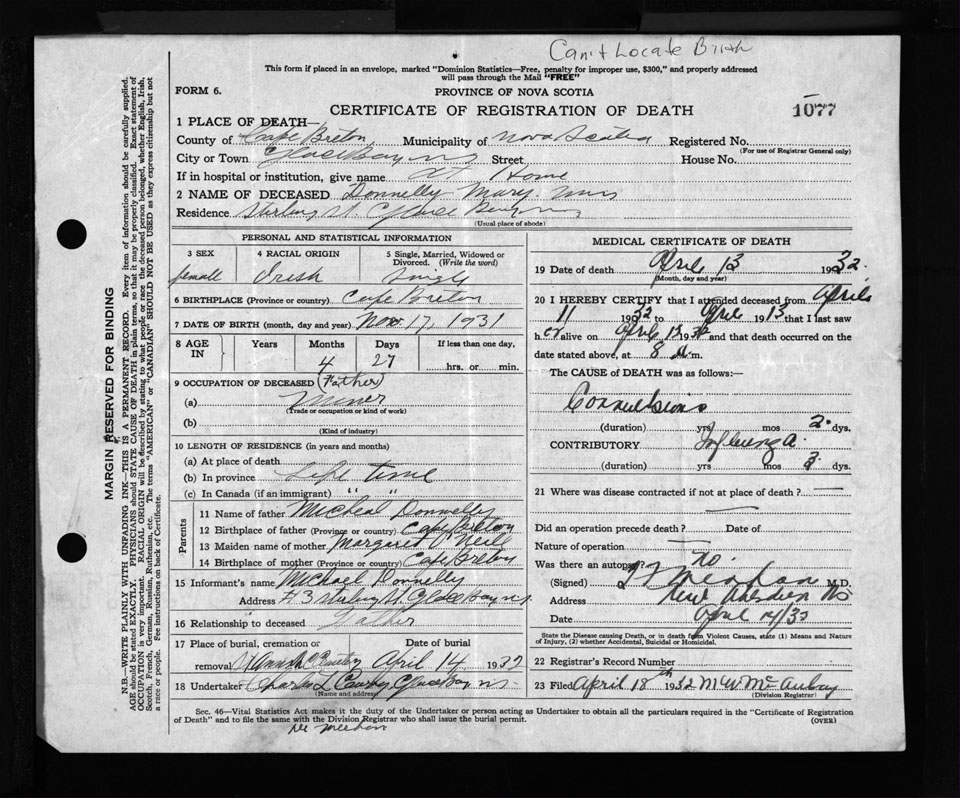 Can't Locate Birth
This form if placed in an envelope, marked "Dominion Statistics—Free, penalty for improper use, $300," and properly addressed
will pass through the Mail "FREE"
FORM 6.
PROVINCE OF NOVA SCOTIA
CERTIFICATE OF REGISTRATION OF DEATH
1077
1 PLACE OF DEATH—
County of Cape Breton Municipality of Nova Scotia Registered No.
(For use of Registrar General only)
City or Town Glace Bay N.S. Street House No.
If in hospital or institution, give name At Home
2 NAME OF DECEASED Donnelly Mary
Residence Sterling St. Glace Bay N.S.
(Usual place of abode)
PERSONAL AND STATISTICAL INFORMATION
3 SEX
female
4 RACIAL ORIGIN
Irish
5 Single, Married, Widowed or Divorced. (Write the word)
Single
6 BIRTHPLACE (Province or country) Cape Breton
7 DATE OF BIRTH (month, day and year) Nov. 17, 1931
8 AGE IN Years Months Days If less than one day,
4 27 hrs. or min.
9 OCCUPATION OF DECEASED (Father)
(a) Miner
(Trade or occupation or kind of work)
(b)
(Kind of industry)
10 LENGTH OF RESIDENCE (in years and months)
(a) At place of death
(b) In province Life time
(c) In Canada (if an immigrant) " "
Parents
11 Name of father Micheal Donnelly
12 Birthplace of father (Province or country) Cape Breton
13 Maiden name of mother Margaret Neil
14 Birthplace of mother (Province or country) Cape Breton
15 Informant's name Michael Donnelly
Address #3 Sterling St. Glace Bay N.S.
16 Relationship to deceased Father
17 Place of burial, cremation or removal Date of burial
St Anns April 14 1932
18 Undertaker Charles L Glace Bay N.S.
(Name and address)
MEDICAL CERTIFICATE OF DEATH
19 Date of death April 13 1932.
(Month, day and year)
20 I HEREBY CERTIFY that I attended deceased from April
11 1932 to April 1913 that I last saw
her alive on April 13 1932 and that death occurred on the
date stated above, at 8 A.m.
The CAUSE of DEATH was as follows:—
Convulsions
(duration) yrs mos 2. dys.
CONTRIBUTORY Influenza.
(duration) yrs mos 3 dys.
21 Where was disease contracted if not at place of death? —
Did an operation precede death? Date of
Nature of operation —
Was there an autopsy? No.
(Signed) Meehan M.D.
Address New Aberdeen NS
Date April 14/32
State the Disease causing Death, or in death from Violent Causes, state (1) Means and Nature
of Injury, (2) whether Accidental, Suicidal or Homicidal.
22 Registrar's Record Number
23 Filed April 18th 1932 M W
(Division Registrar)
Sec. 46—Vital Statistics Act makes it the duty of the Undertaker or person acting as Undertaker to obtain all the particulars required in the "Certificate of Registration
of Death" and to file the same with the Division Registrar who shall issue the burial permit.
(OVER)
Meehan
MARGIN RESERVED FOR BINDING
N.B.—WRITE PLAINLY WITH UNFADING INK—THIS IS A PERMANENT RECORD. Every item of information should be carefully supplied.
AGE should be stated EXACTLY. PHYSICIANS should STATE CAUSE OF DEATH in plain terms, so that it may be properly classified. Exact statement of
OCCUPATION is very important. RACIAL ORIGIN will be described by stating to what people or race the deceased person belonged, whether English, Irish,
Scotch, French, German, Russian, Ruthenian, etc. The terms "AMERICAN" or "CANADIAN" SHOULD NOT BE USED as they express citizenship but not
a race or people. See instructions on back of Certificate.